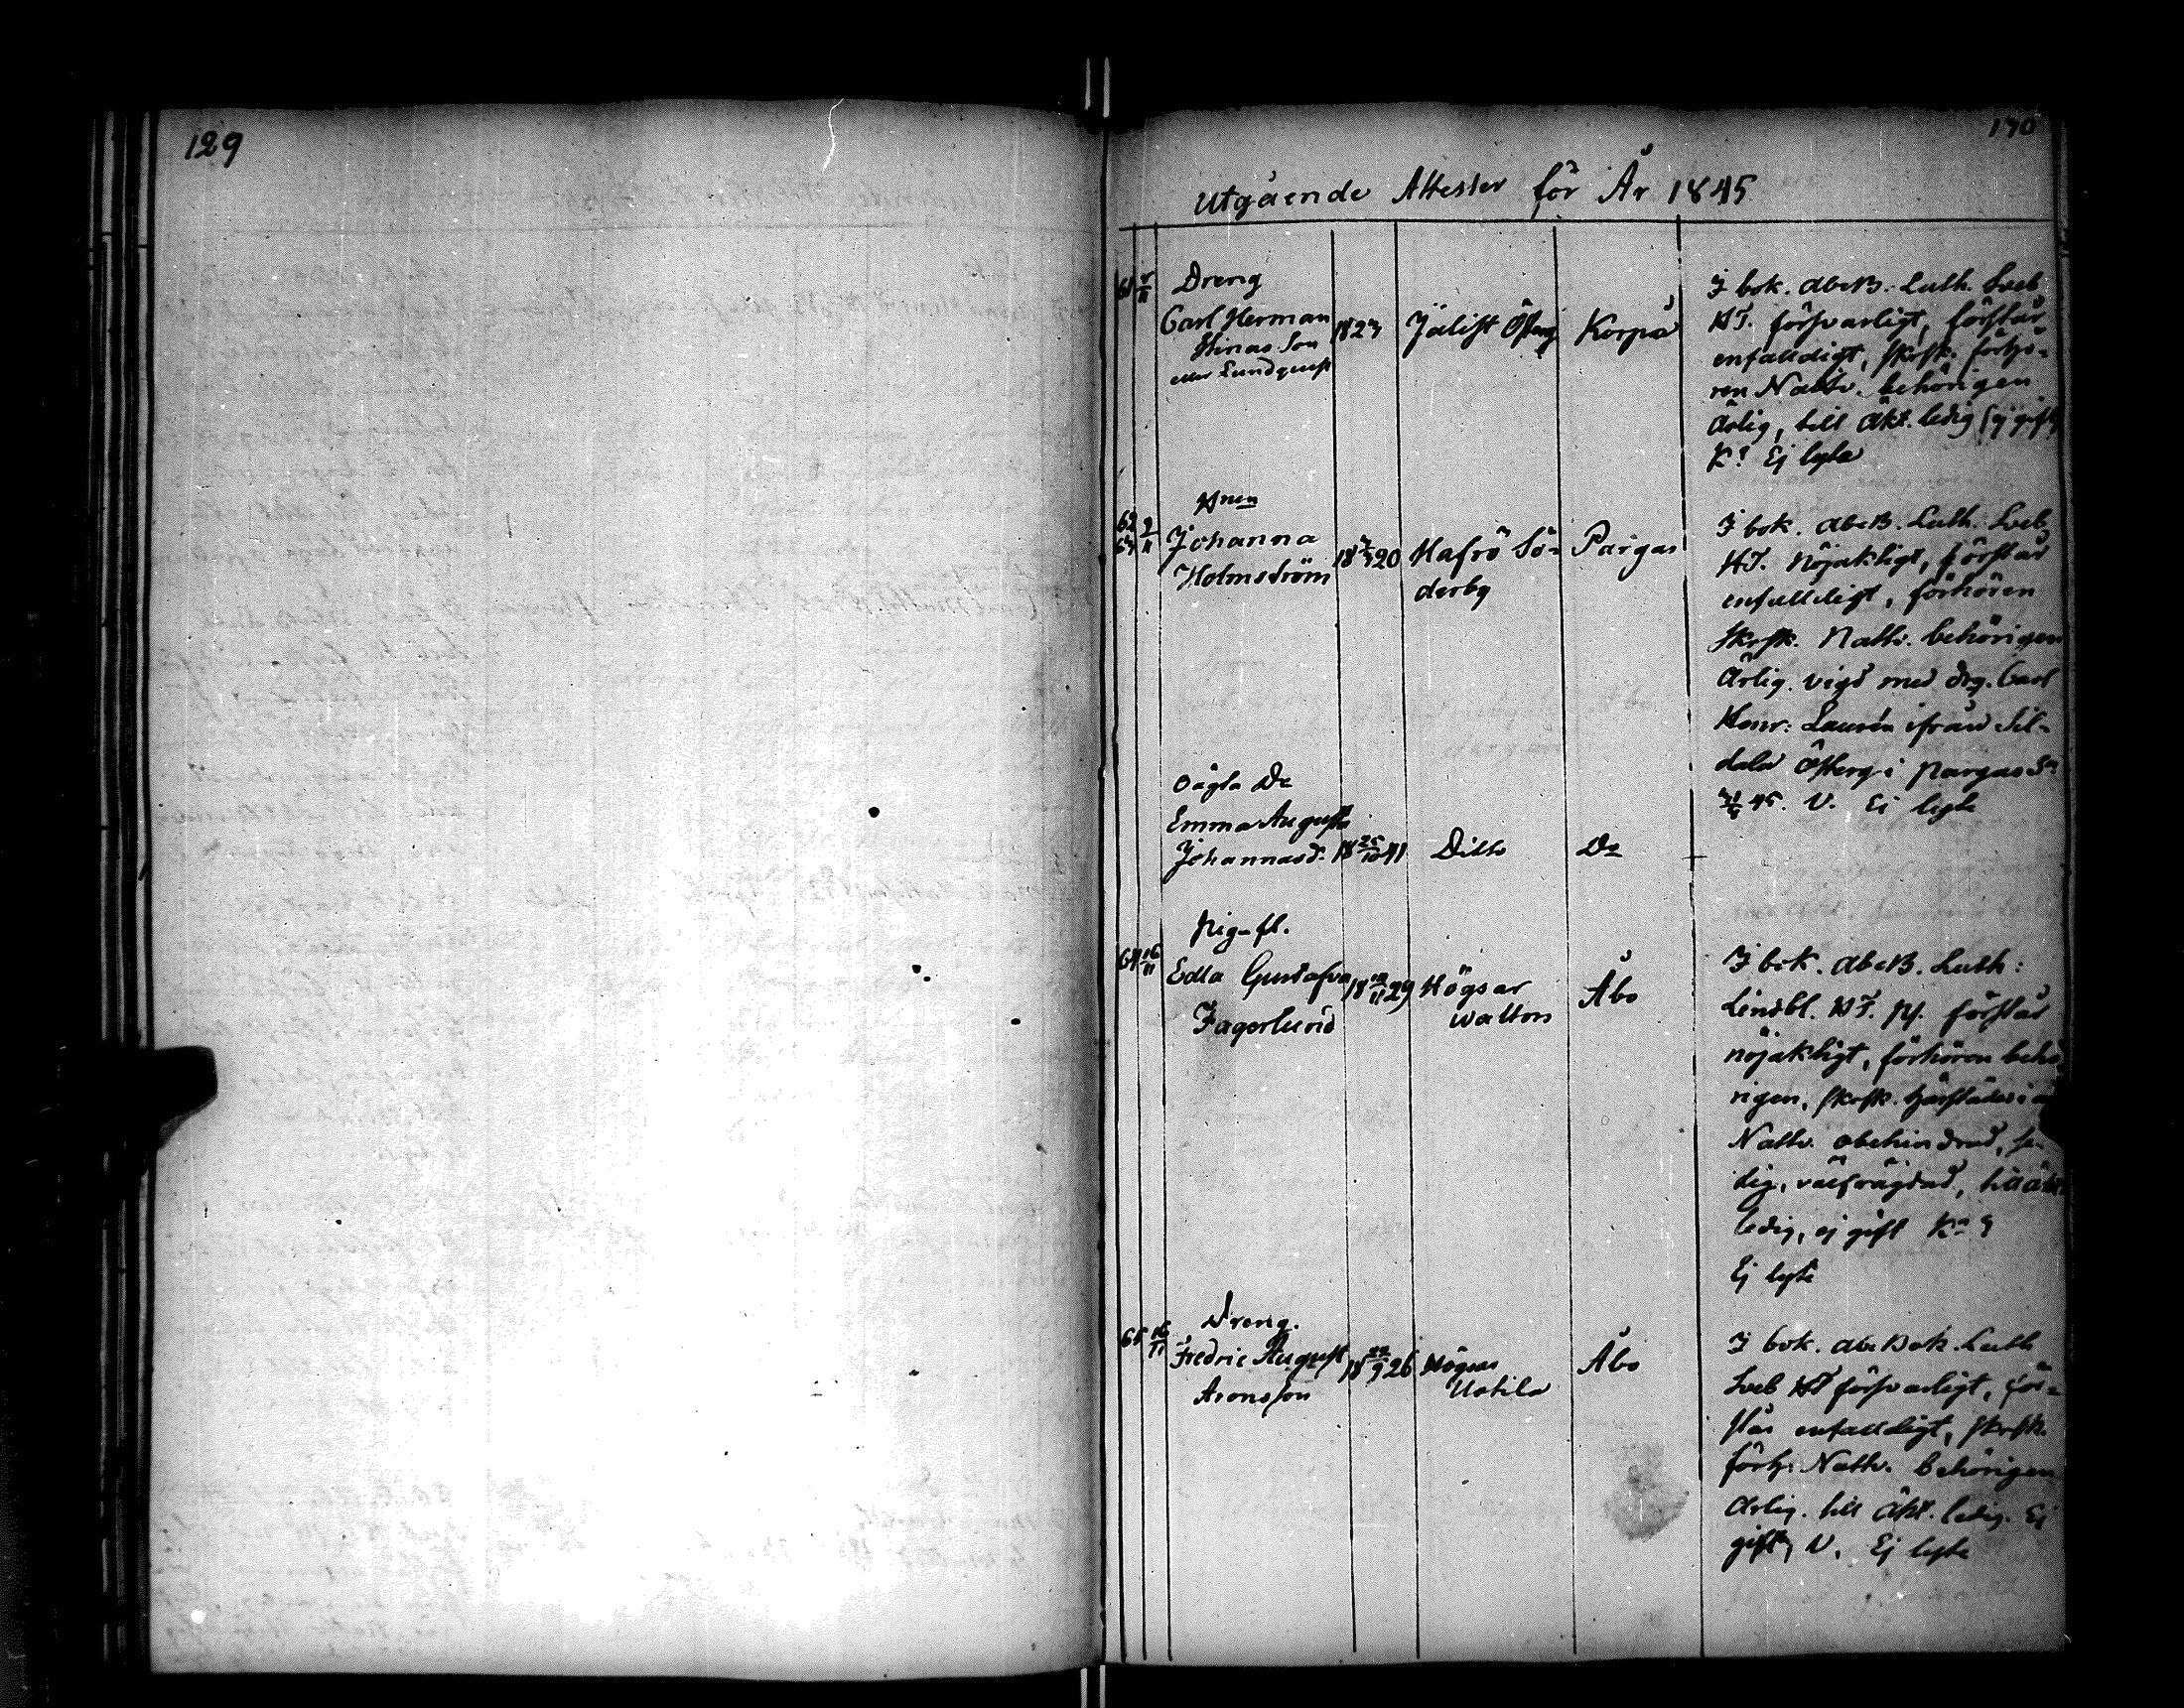 129
130
Utgående Attester för År 1845
61 5/11 Dreng
Carl Herman
Stinas Son
eller Lundquist
1823
Jälist Österg
Korpo
I bok. Abc B. Luth. Sveb
HT. försvarligt, förstår
enfalldigt, skrsk. förhö-
ren Nattv. behörigen
Ärlig, till äkt. ledig (ej gift)
K! Ej lyte
62 63 9/11 Hnen
Johanna
Holmström
20
Hafrö Sö-
derby
Pargas
I bok. Abc B. Luth. Sveb
HT. Nöjaktligt, förstår
enfalldigt, förhören
Skrsk. Nattv. behörigen
Ärlig. vigd med drg. Carl
Henr: Laurén ifrån Sil-
dala Österg. i Pargas Sn
45. V. Ej lyte
oägta Dr
Emma Augusta
Johannasd:
18 25/10 41
Ditto
Do
Pig-fl.
64 16/11 Edla Gustafva
Fagerlund
29
Högsar
Waltons
Åbo
I bok. Abc B. Luth:
Lindbl. HT. Ps. förstår
nöjaktligt, förhören behö
rigen, skrsk. härstädes i
Nattv. obehindrad, se-
dig, välfrägdad, till äkt
ledig, ej gift
Ej lyte
65 16/11 Dreng.
Fredric August
Aronsson
18 22/9 26
Högsar
Uotila
Åbo
I bok. Abc Bok. Luth
Sveb HT försvarligt, för-
står enfalldigt, skrsk.
förh: Nattv. behörigen
Ärlig. till äkt. ledig. Ej
gift, V. Ej lyte